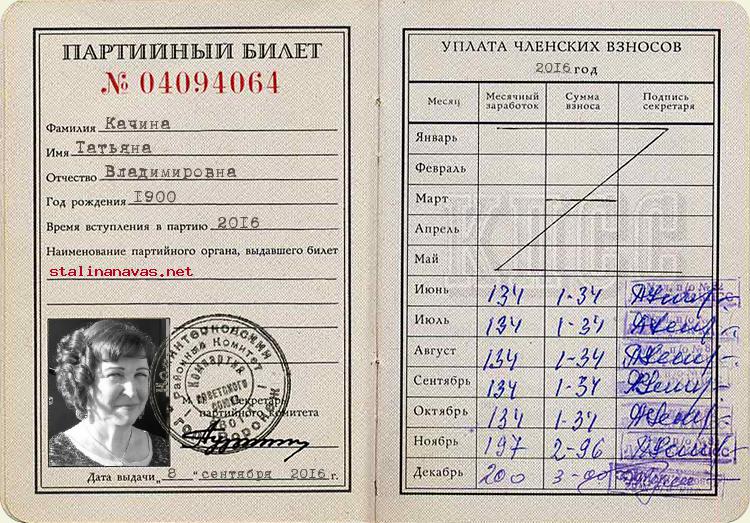 ПАРТИЙНЫЙ БИЛЕТ
№ 04094064
Фамилия Качина
Имя Татьяна
Отчество Владимировна
Год рождения 1900
Время вступления в партию 2016
Наименование партийного органа, выдавшего билет
stalinanavas.net
Районный Комитет
Компартия
Советского
Союза
М Секретарь
партийного комитета
Дата выдачи „ 8 " сентября 2016 г.
УПЛАТА ЧЛЕНСКИХ ВЗНОСОВ
2016 год
Месяц Месячный заработок Сумма взноса Подпись секретаря
Январь
Февраль
Март
Апрель
Май
КПСС
Июнь 134 1-34
Июль 134 1-34
Август 134 1-34
Сентябрь 134 1-34
Октябрь 134 1-34
Ноябрь 197 2-96
Декабрь 200